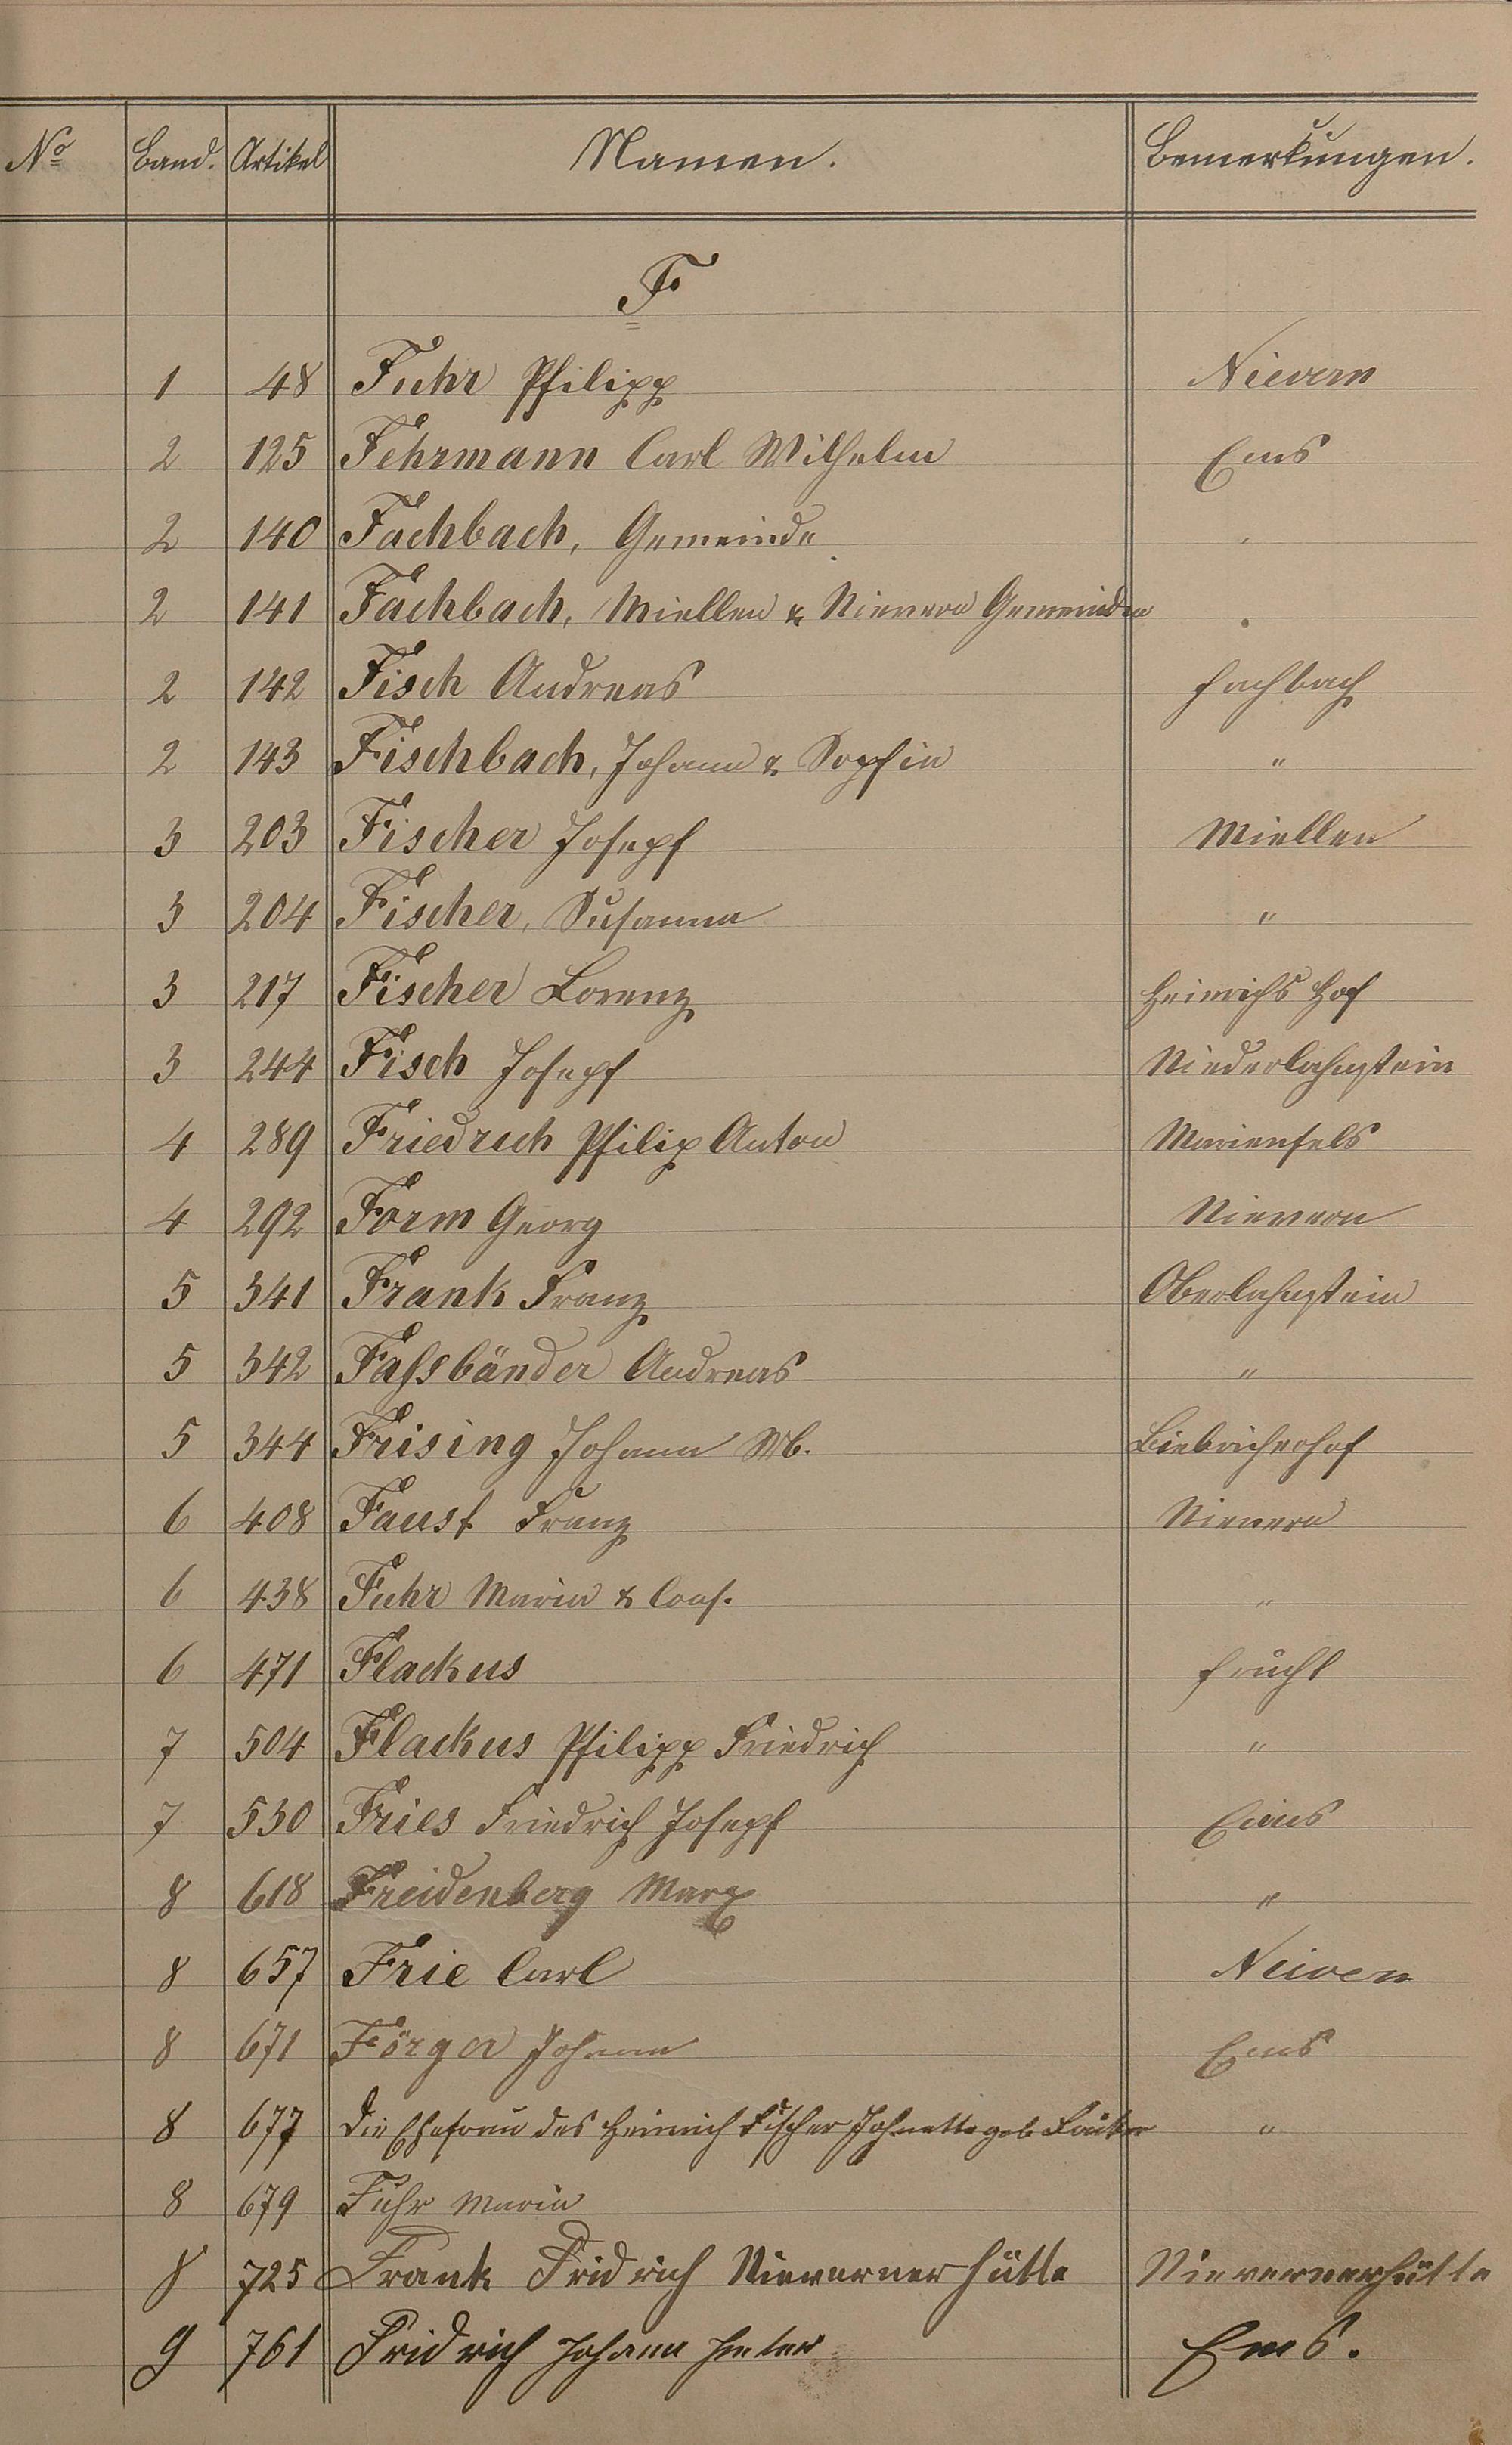 No Band. Artikel Namen. Bemerkungen.
F
1 48 Fuhr Philipp Nievern
2 125 Fehrmann Carl Wilhelm Ems
2 140 Fachbach, Gemeinde
2 141 Fachbach, Miellen & Nievern Gemeinden
2 142 Fisch Andreas Fachbach
2 143 Fischbach, Johann & Sophie "
3 203 Fischer Joseph Miellen
3 204 Fischer, Susanna "
3 217 Fischer Lorenz Heinrichs Hof
3 244 Fisch Joseph Niederlahnstein
4 289 Friedrich Philip Anton Marienfels
4 292 Form Georg Nievern
5 341 Frank Franz Oberlahnstein
5 342 Fassbänder Andreas "
5 344 Frising Johann Mb. Biebricherhof
6 408 Faust Franz Nievern
6 438 Fuhr Maria & Cons. "
6 471 Flackus Frücht
7 504 Flackus Philipp Friedrich "
7 530 Fries Friedrich Joseph Ems
8 618 Freidenberg Marx "
8 657 Frie Carl Neiven
8 671 Förger Johann Ems
8 677 Die Ehefrau des Heinrich Fischer Johnette geb "
8 679 Fuhr Maria
8 725 Frank Fridrich Nieverner Hütte Nievernerhütte
9 761 Fridrich Johann Peter Ems.